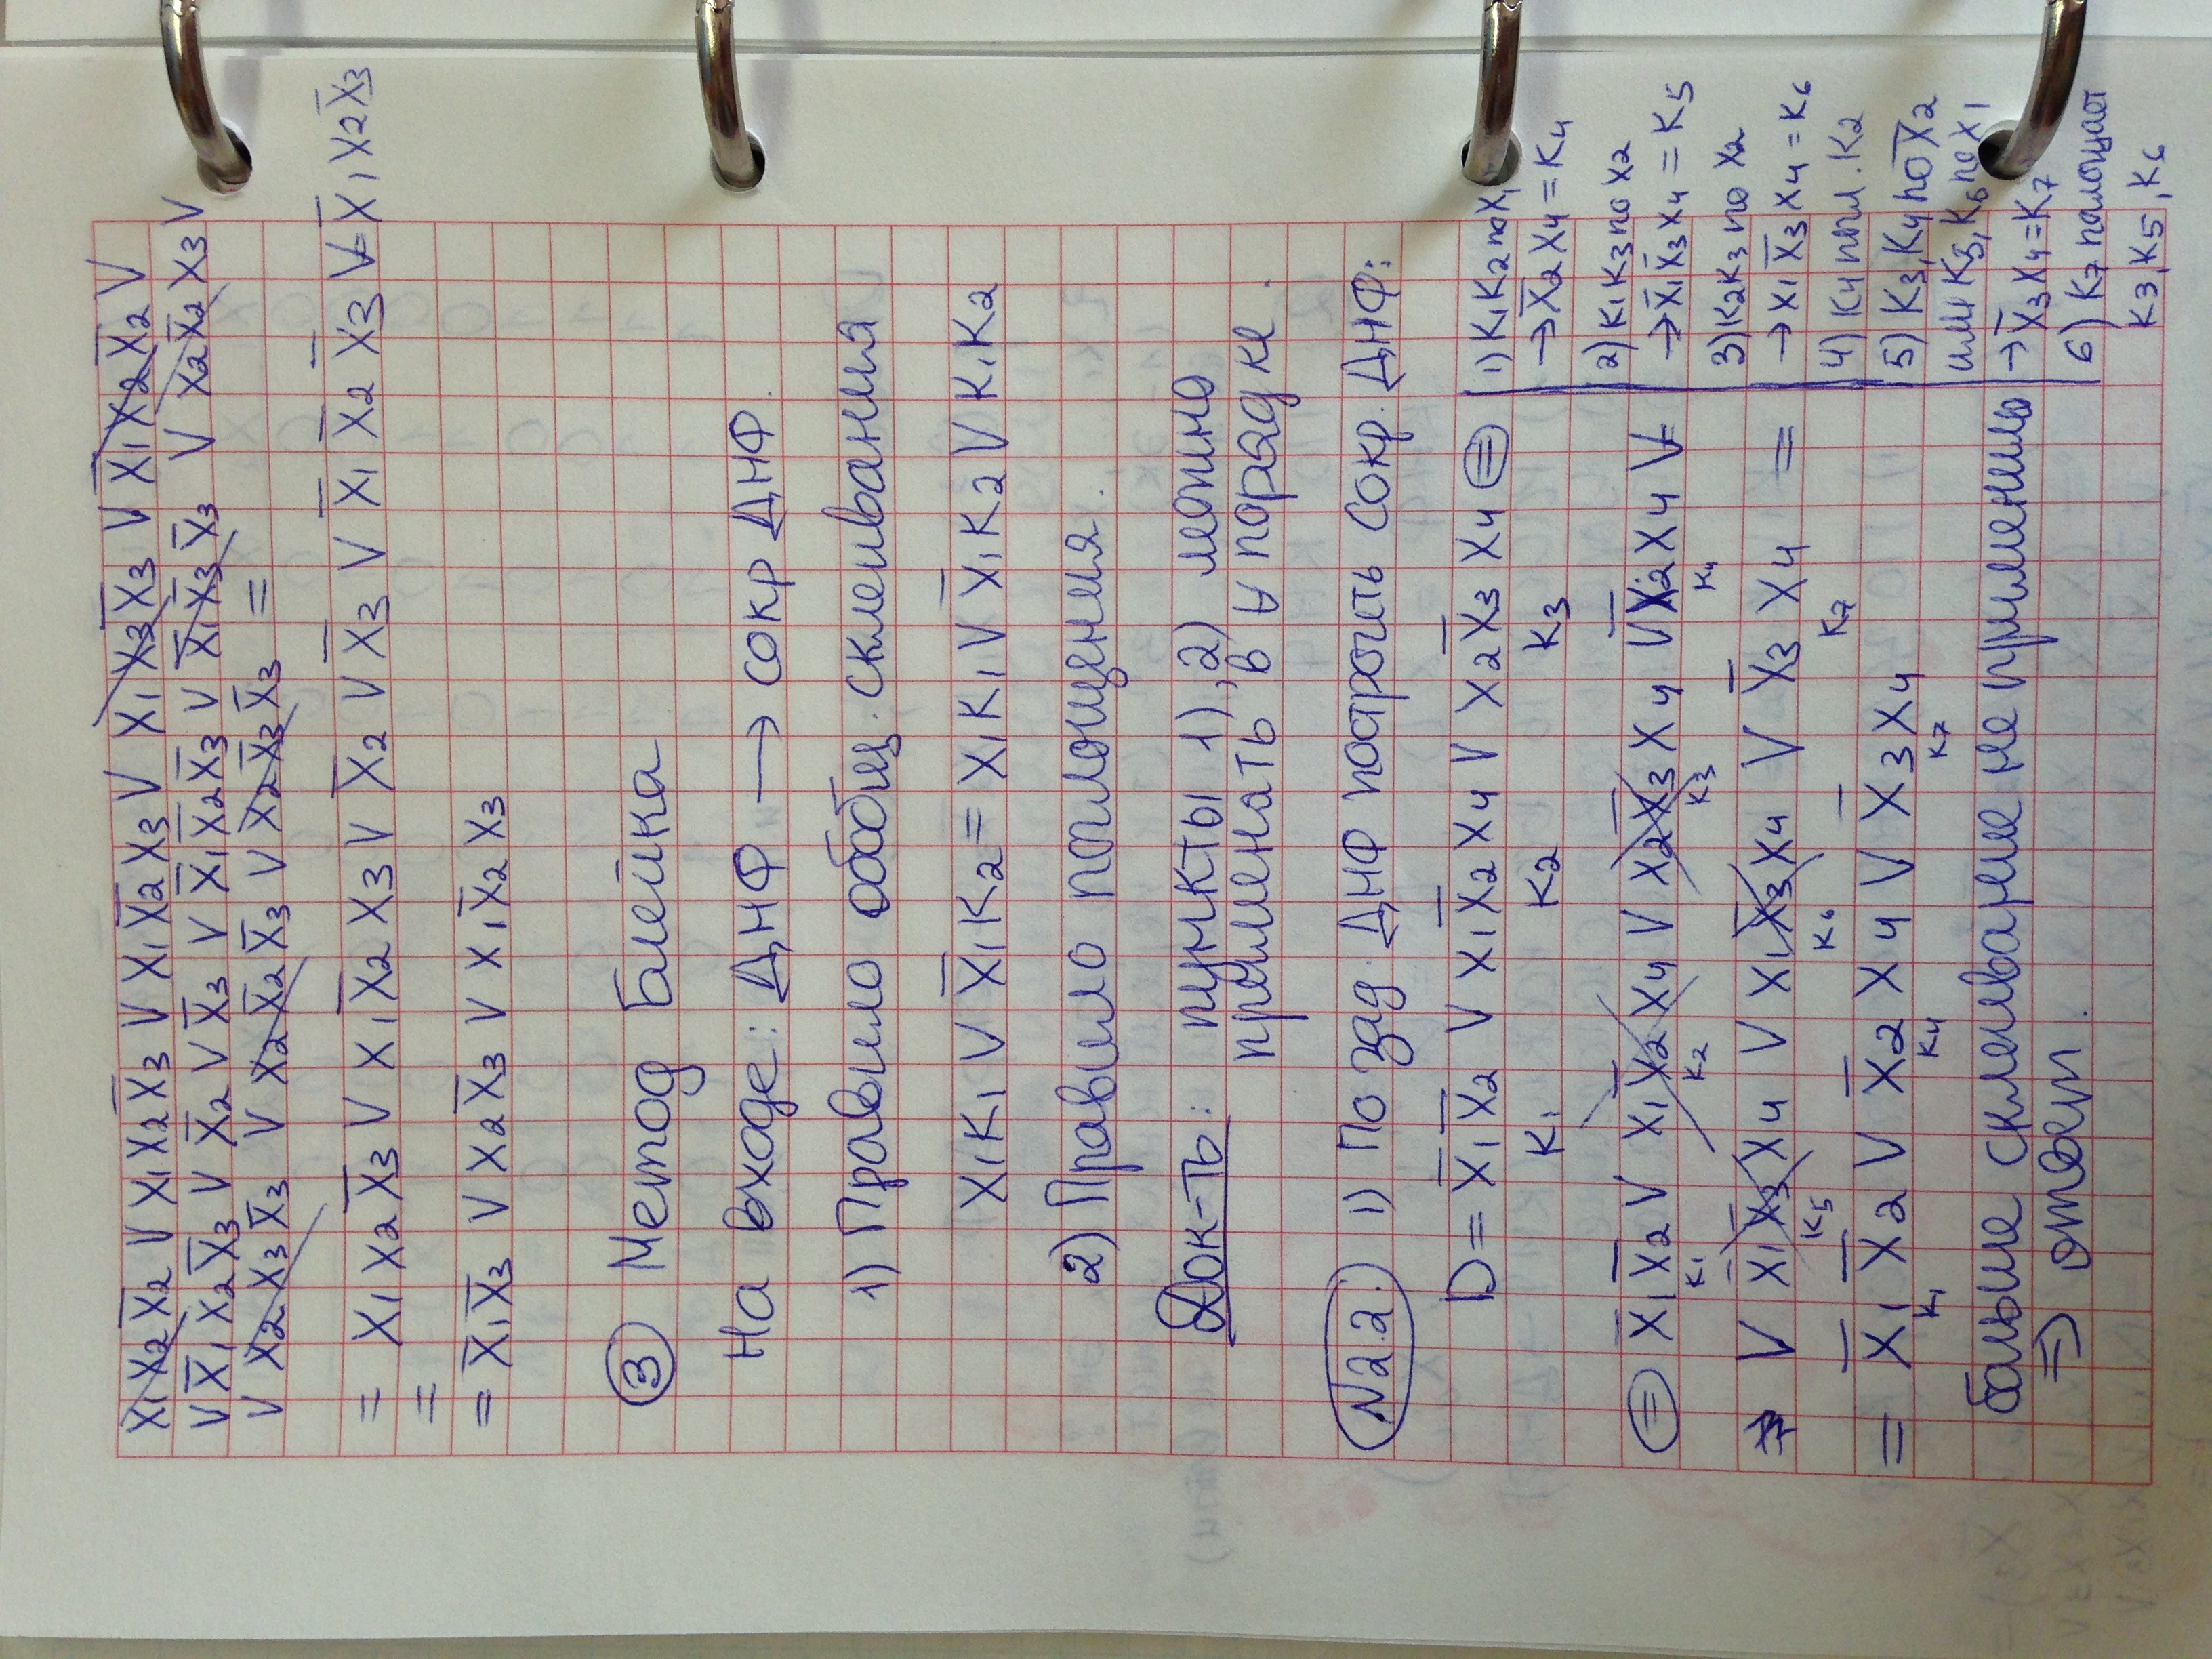 x1x2x̄2 V x1x2x̄3 V x1x̄2x3 V x1x3x̄3 V x̄1x2x̄2 V
V x̄1x2x̄3 V x̄2 V x̄3 V x̄1x̄2x̄3 V x̄1x̄3x̄3 V x2x̄2x3 V
V x2x3x̄3 V x2x̄2x̄3 V x2x̄3x̄3 =
= x1x2x̄3 V x1x̄2x3 V x̄2 V x̄3 V x̄1x̄2x̄3 V x̄1x2x̄3
=
= x̄1x̄3 V x2x̄3 V x1x̄2x3
③ Метод Блейка
На входе: ДНФ → сокр ДНФ.
1) Правило обобщ. склеивания
x1K1 V x̄1K2 = x1K1 V x̄1K2 V K1K2
2) Правило поглощения.
Док-ть: пункты 1), 2) можно
применять в ∀ порядке.
№2.2. 1) По зад. ДНФ построить сокр. ДНФ:
D = x̄1x̄2 V x1x̄2x4 V x2x̄3x4 =
K1 K2 K3
= x̄1x̄2 V x1x̄2x4 V x2x̄3x4 V x̄2x4 V
K1 K2 K3 K4
V x̄1x̄3x4 V x1x̄3x4 V x̄3x4 =
K5 K6 K7
= x̄1x̄2 V x̄2x4 V x̄3x4
K1 K4 K7
больше склеивание не применимо
⇒ ответ.
1) K1K2 по x1
→ x̄2x4 = K4
2) K1K3 по x2
→ x̄1x̄3x4 = K5
3) K2K3 по x2
→ x1x̄3x4 = K6
4) K4 погл. K2
5) K3, K4 по x2
или K5, K6 по x1
→ x̄3x4 = K7
6) K7 поглощает
K3, K5, K6